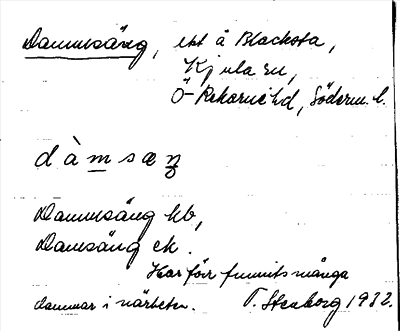 Dammsäng, ext å Blacksta,
Kjula sn,
Ö Rekarne hd, Söderm. l.
dàmsæŋ
Dammsäng hb,
Damsäng ek.
Har förr funnits många
dammar i närheten. T. Stenborg 1932.